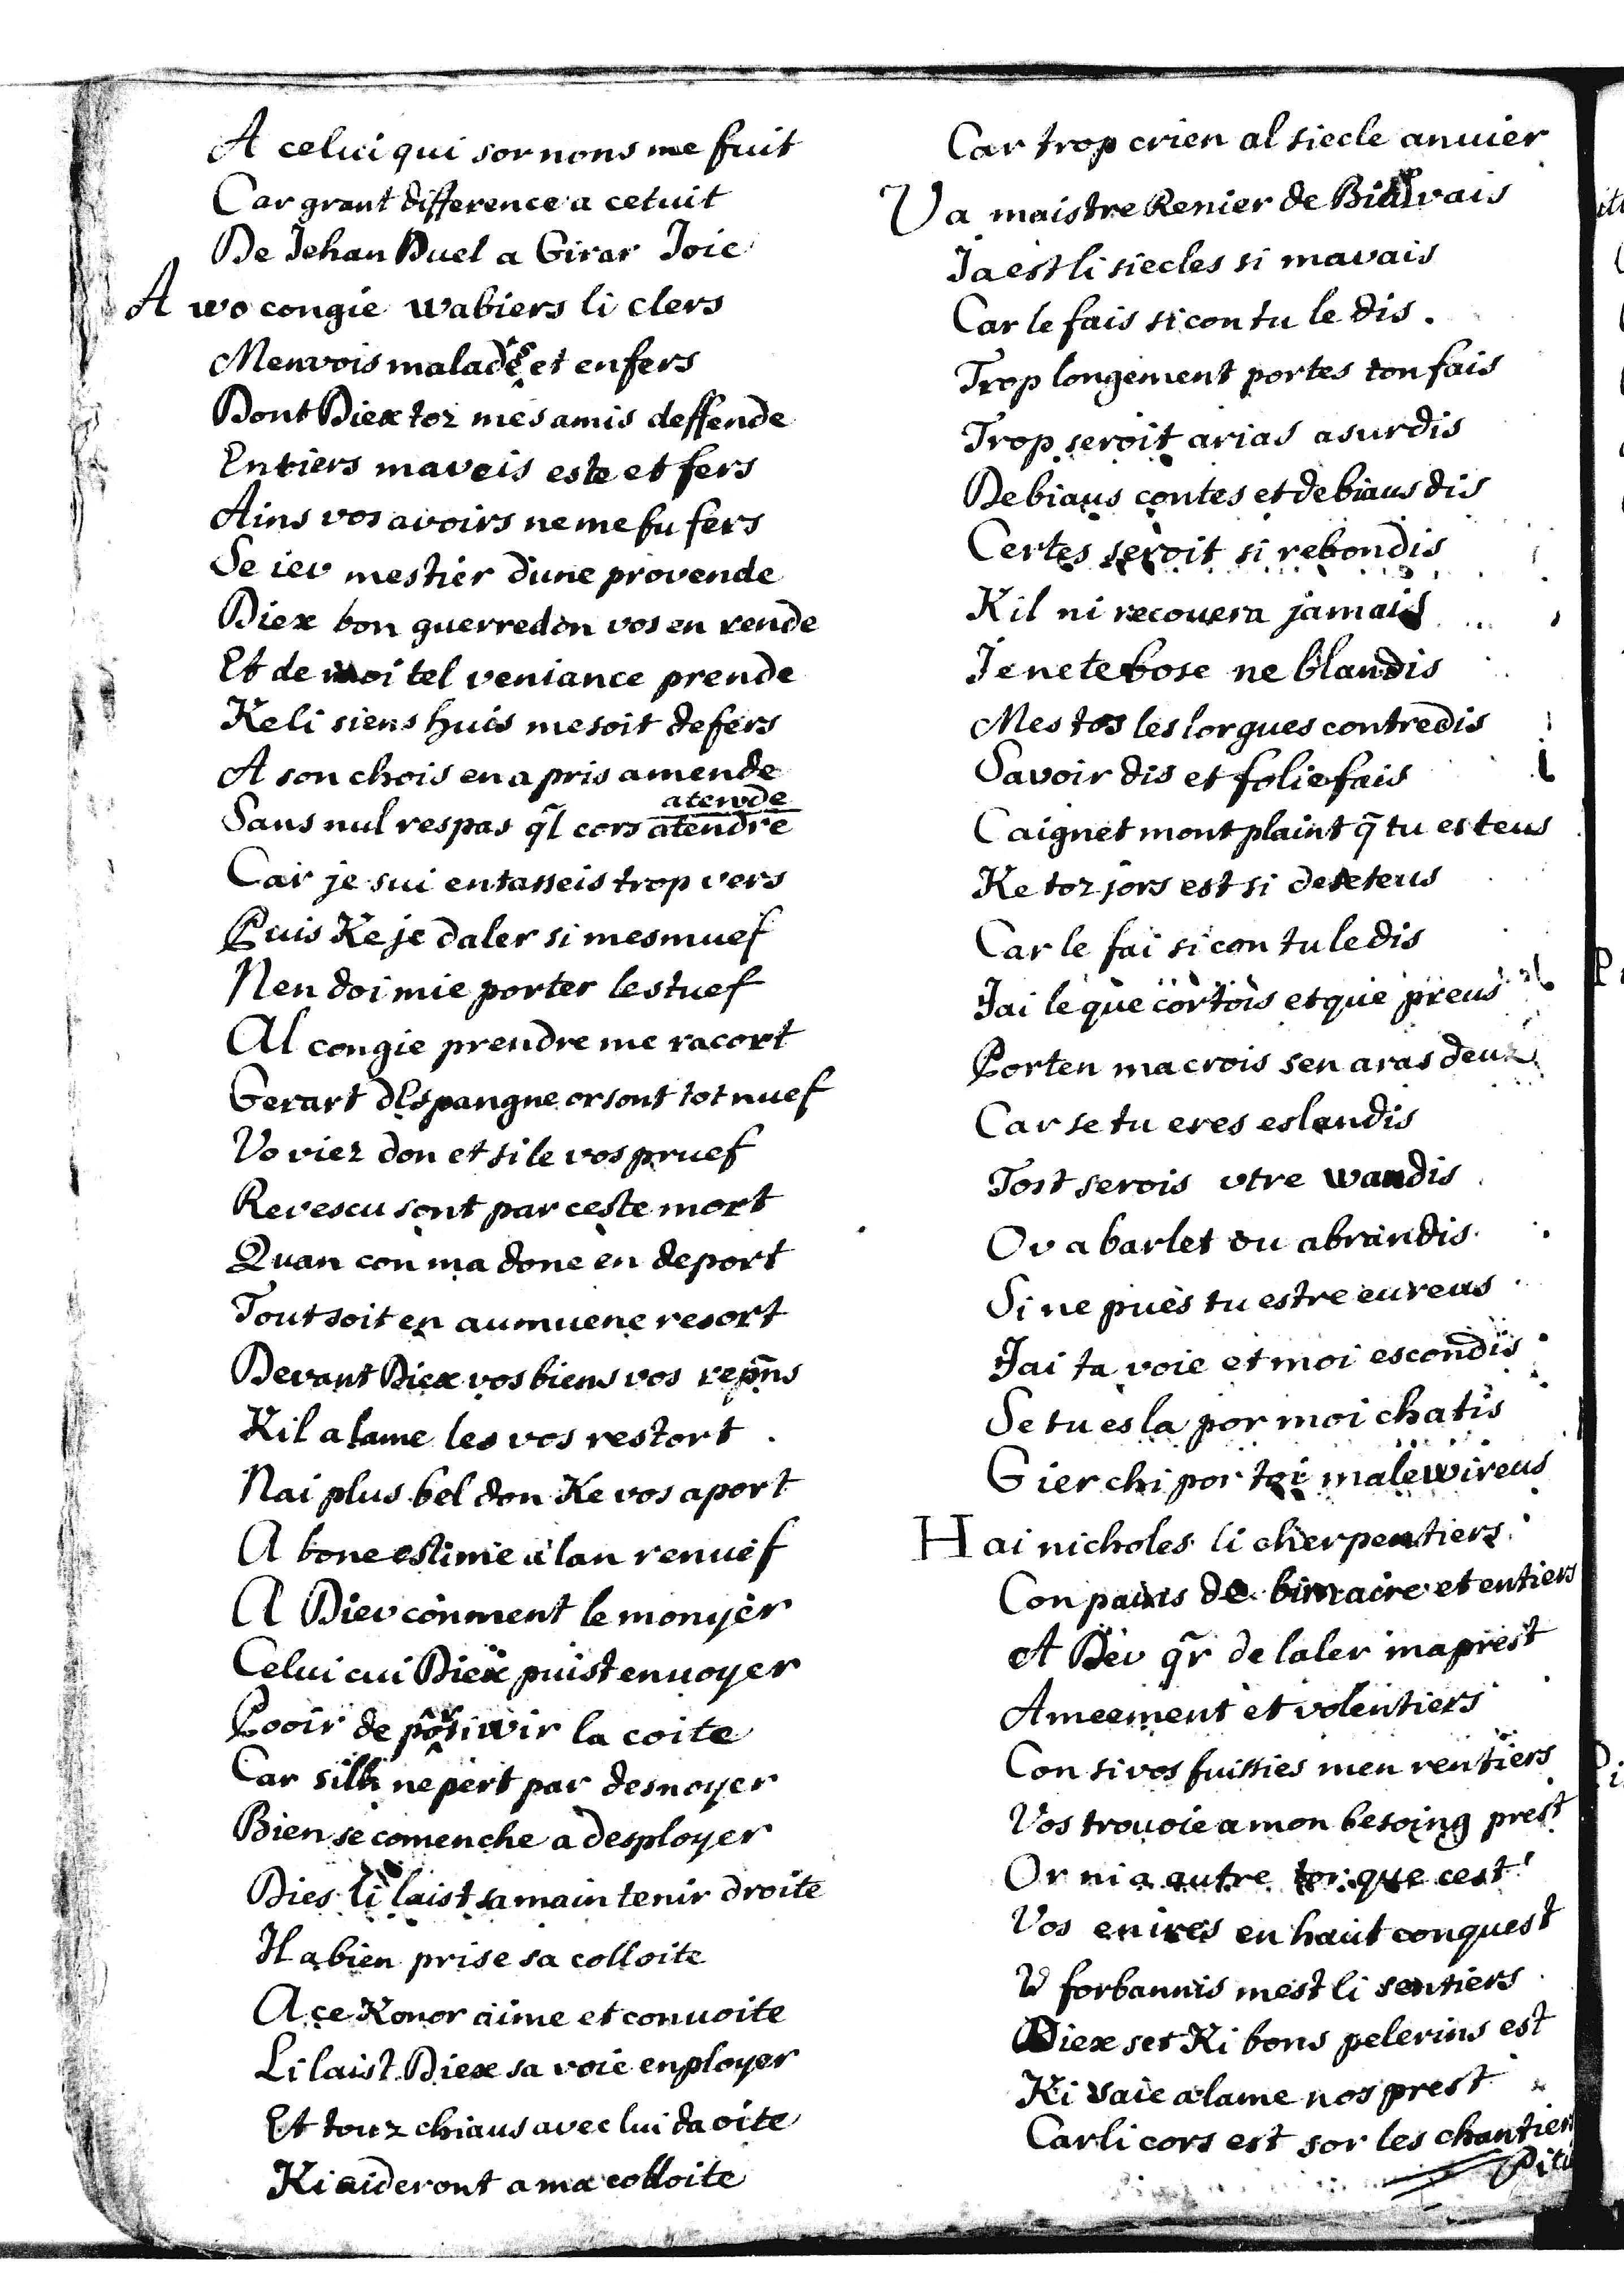 A celui qui sornons me fuit
Car grant difference a cetuit
De Jehan Duel a Girar Joie
A wo congie wabiers li clers
Menvois malades et enfers
Dont Diex toz mes amis deffende
Entiers maveis este et fers
Ains vos avoirs ne me fu fers
Se iev mestier dune provende
Diex bon guerredon vos en rende
Et de moi tel veniance prende
Ke li siens huis me soit defers
A son chois en a pris amende
atende
Sans nul respas q̃l cors atendre
Car je sui entasseis trop vers
Puis Ke je daler si mesmuef
Nen doi mie porter lestuef
Al congie prendre me racort
Gerart dEspangne or sont tot nuef
Vo viez don et si le vos pruef
Revescu sont par ceste mort
Quan con ma done en deport
Tout soit en aumuene resort
Devant Diex vos biens vos rep̃ns
Kil a lame les vos restort .
Nai plus bel don Ke vos aport
A bone estinie a lan renuef
A Diev conment le monyer
Celui cui Diex puist enuoyer
Pooir de porsiwir la coite
Car silh ne pert par desnoyer
Bien se comenche a desployer
Dies li laist sa main tenir droite
Il a bien prise sa colloite
A ce Konor aime et conuoite
Li laist Diex sa voie enployer
Et touz chiaus avec lui daoite
Ki aideront a ma colloite
Car trop crien al siecle anuier
Va maistre Renier de Biauvais
Ja est li siecles si mavais
Car le fais si con tu le dis .
Trop longement portes ton fais
Trop seroit arias asurdis
De biaus contes et de biaus dis
Certes seroit si rebondis
Kil ni recouera jamais
Je ne te bose ne blandis
Mes tos les lorgues contredis
Savoir dis et folie fais
Caignet mont plaint q̃ tu es teus
Ke toz jors est si deteteus
Car le fai si con tu le dis
Jai le que cortois et que preus
Porten ma crois sen aras deuz
Car se tu eres eslandis
Tost serois vtre wandis
Ov a barlet ou abrandis
Si ne pues tu estre eureus
Jai ta voie et moi escondis
Se tu es la por moi chatis
Gier chi por toi malewireus
Hai nicholes li cherpentiers
Conpains de binaire et entiers
A Dev qr̃ de laler maprest
Ameement et volentiers
Con si vos fuissies meu rentiers
Vos trouoie a mon besoing prest
Or ni a autre tor que cest
Vos enires en haut conquest
V forbannis mest li sentiers
Diex set Ki bons pelerins est
Ki vaie a lame nos prest
Car li cors est sor les chantiers